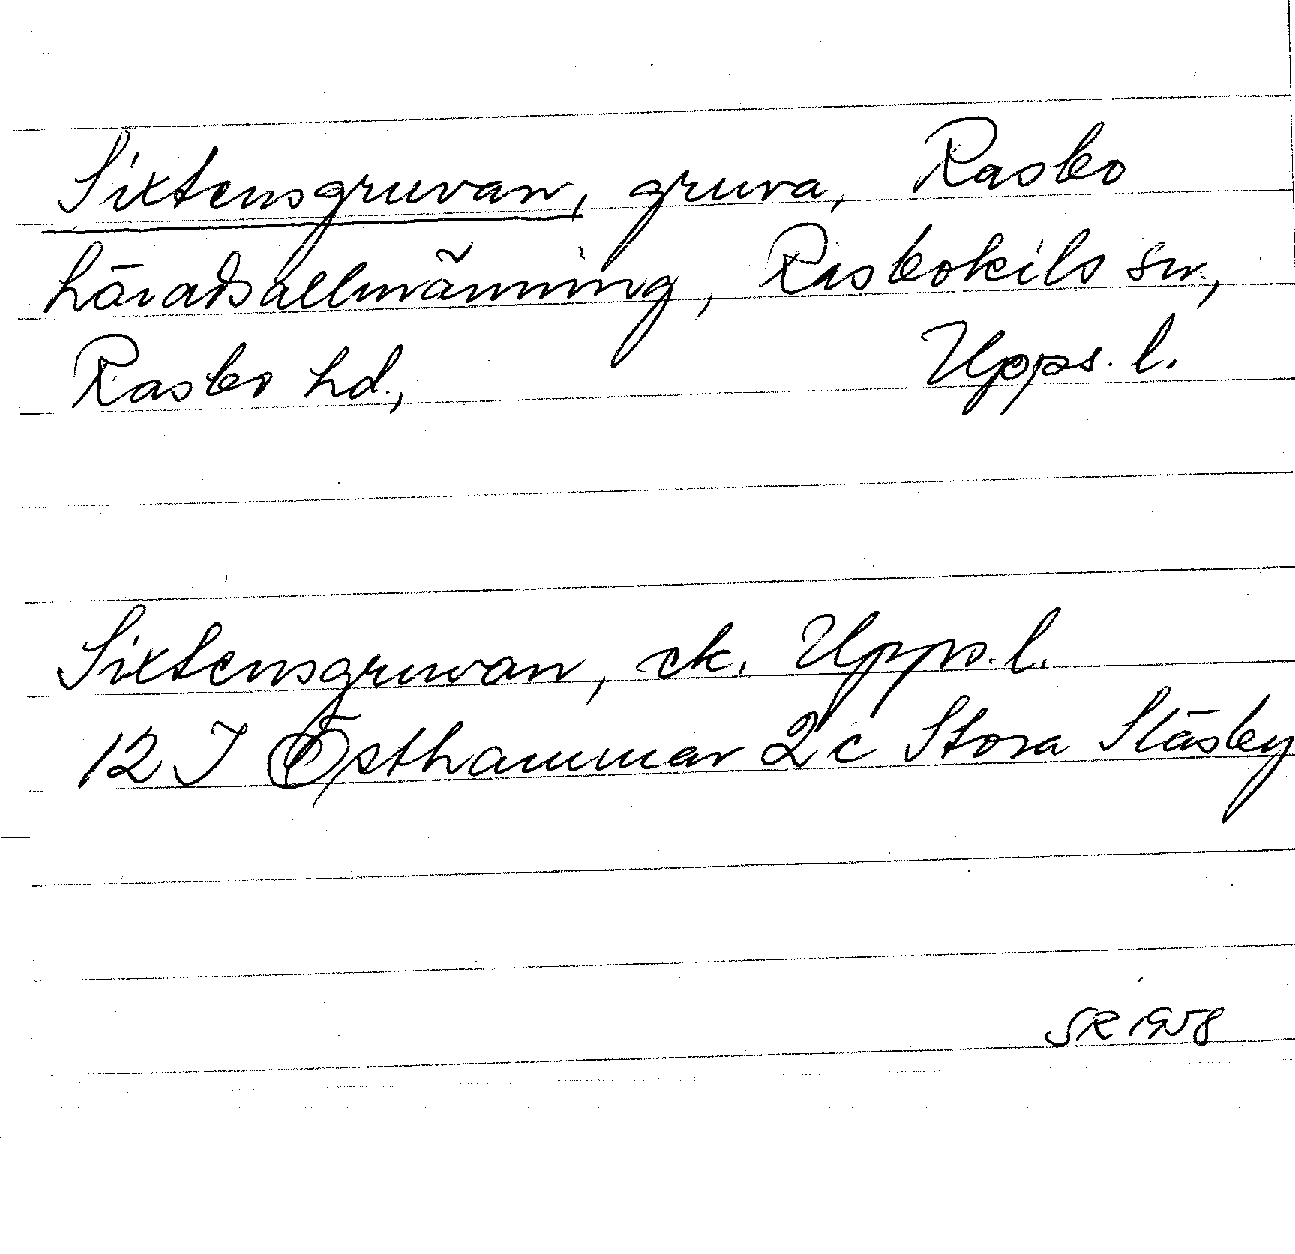 Sixtensgruvan, gruva, Rasbo
häradsallmänning, Rasbokils sn,
Rasbo hd., Upps. l.
Sixtensgruvan, ek. Upps. l.
12 I Östhammar 2 c Stora Stäsby
SR 1958